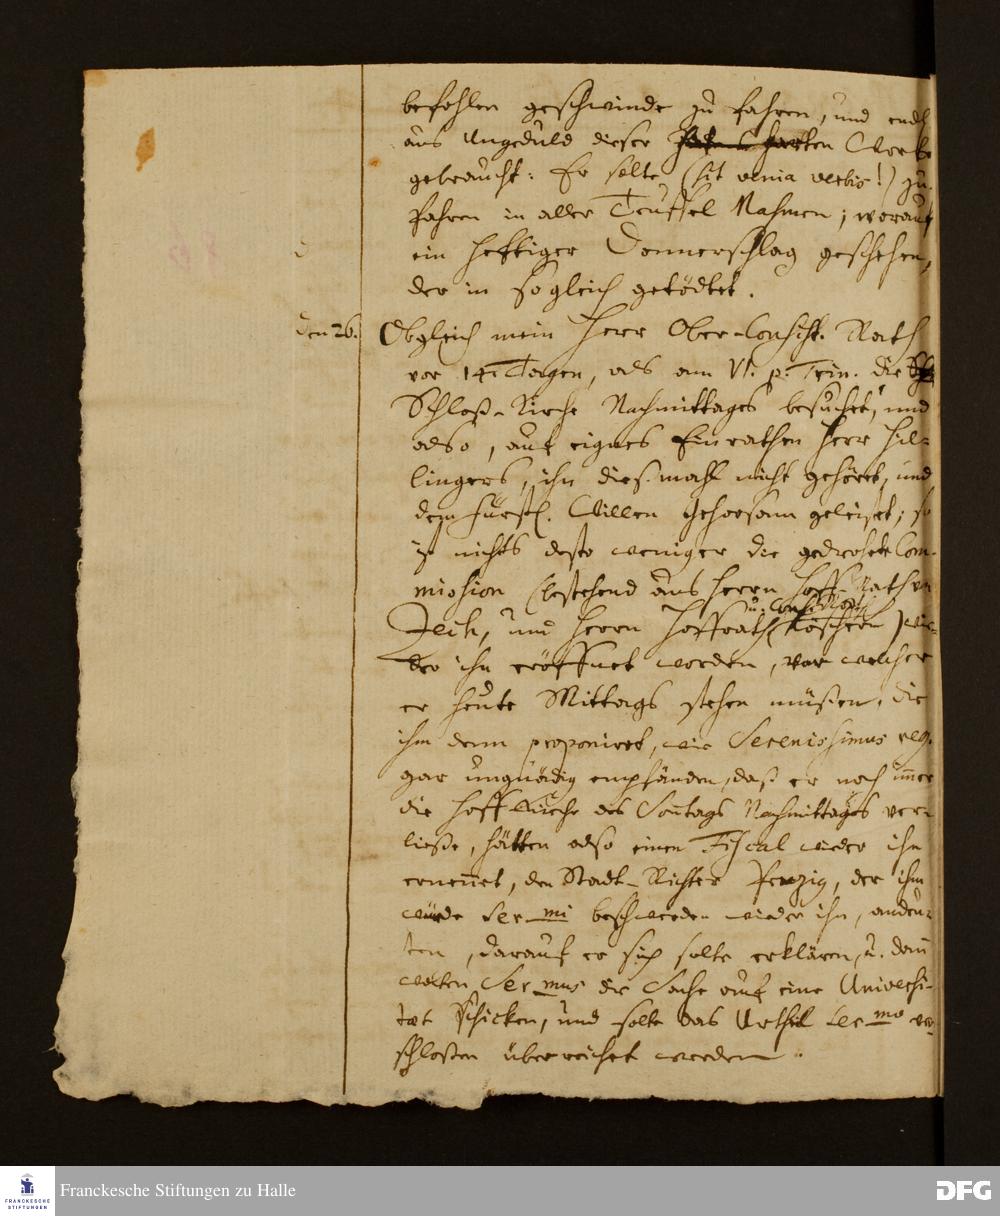 befohlen geschwinde zu fahren, und endl
aus Ungeduld dieser harten Worte
gebraucht: Er solte (sit venia verbis!) zu
fahren in aller Teuffel Nahmen; worauf
ein hefftiger Donnerschlag geschehen,
der in so gleich getödtet.
den 26. Obgleich mein Herr Ober-Consist. Rath
vor 14. Tagen, als am VI. p. Trin. die
Schloß-Kirche Nachmittages besuchet, und
also, auf eignes Einrathen Herr Hil-
lingers, ihn diesmahl nicht gehöret, und
dem Fürstl. Willen Gehorsam geleistet; so
ist nichts desto weniger die gedrohete Com-
mission (bestehend aus Herrn Hoff-Rath von
u. Consist. Rath
Zech, und Herrn Hoffrath Röschern) wie-
der ihn eröffnet worden, vor welcher
er heute Mittags stehen müßen, die
ihm denn proponiret, wie Serenissimus reg.
gar ungnädig empfänden, daß er noch immer
die Hoff Kirche des Sontags Nachmittages ver-
ließe, hätten also einen Fiscal wieder ihn
ernennet, den Stadt-Richter der ihm
würde Ser_mi beschwerden wieder ihn, andeu-
ten, darauf er sich solte erklären, u. dann
wolten Ser_mus die Sache auf eine Universi-
tæt schicken, und solte das Urthel Ser_mo ver-
schloßen überreichet werden.
Franckesche Stiftungen zu Halle
FRANCKESCHE
STIFTUNGEN
DFG